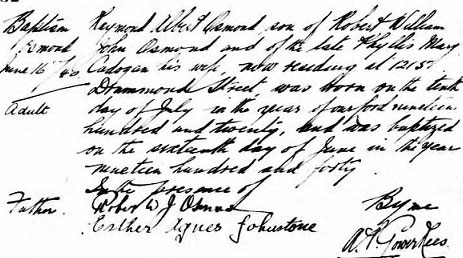 Baptism Raymond Albert Osmond son of Robert William
Osmond John Osmond and of the late Phyllis Mary
June 16 / 40 Cadogan his wife, now residing at 1215
Drummond Street, was born on the tenth
Adult day of July in the year of our Lord nineteen
hundred and twenty, and was baptized
on the sixteenth day of June in the year
nineteen hundred and forty
In the presence of
Father. Robert W J Osmond By me
Esther Agnes Johnstone
A. Gower Rees